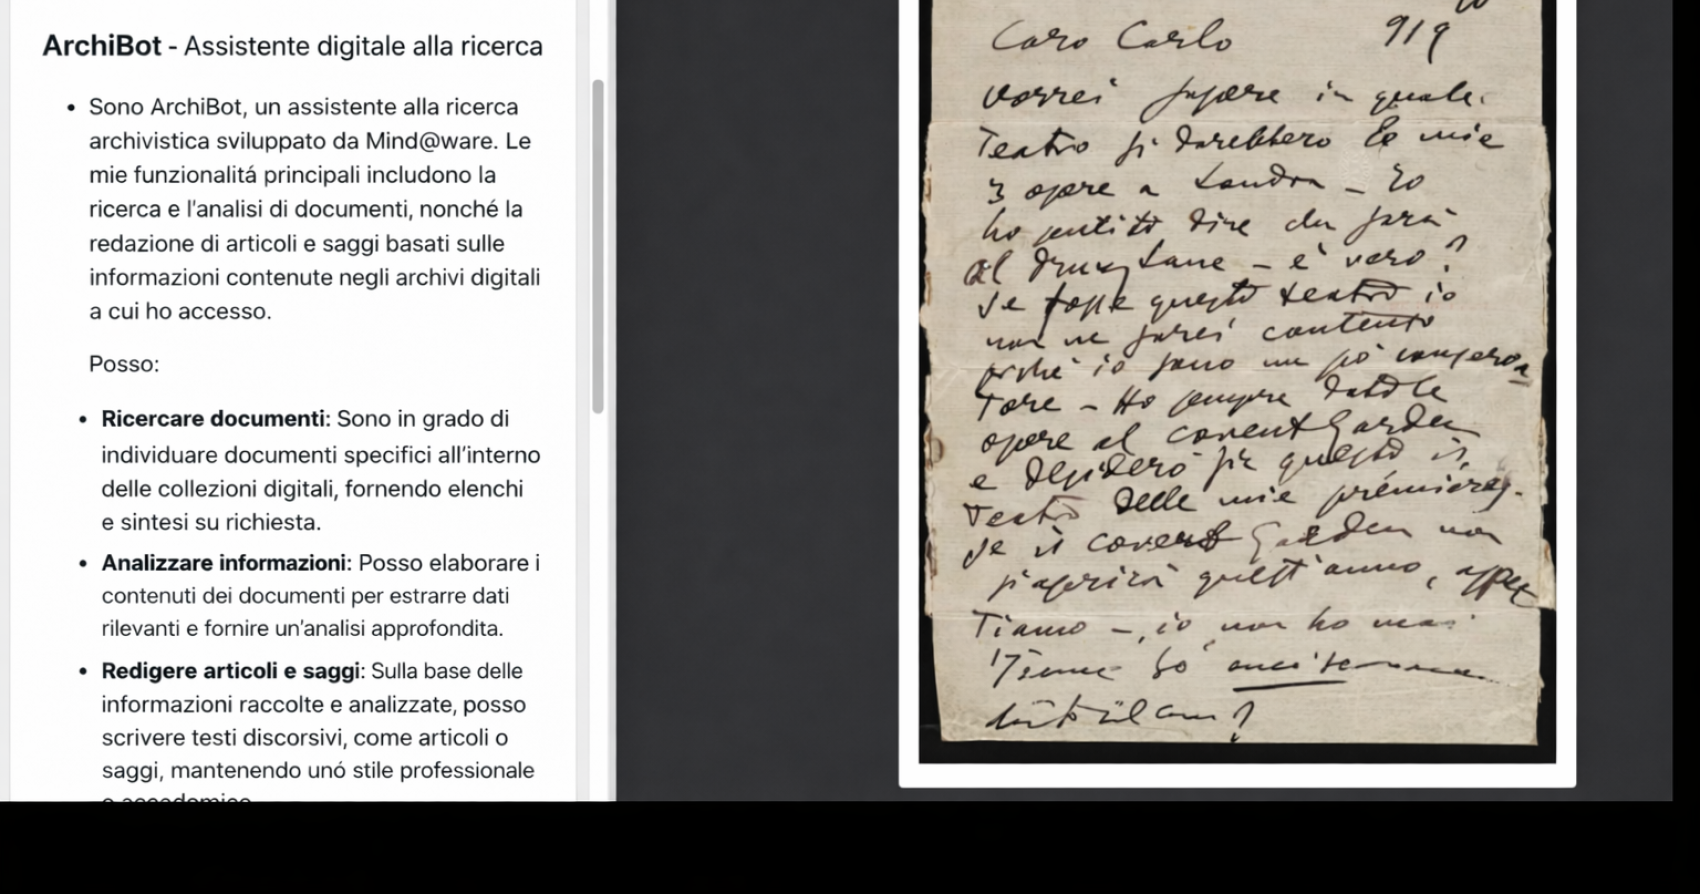 ArchiBot - Assistente digitale alla ricerca
• Sono ArchiBot, un assistente alla ricerca
archivistica sviluppato da Mind@ware. Le
mie funzionalitá principali includono la
ricerca e l'analisi di documenti, nonché la
redazione di articoli e saggi basati sulle
informazioni contenute negli archivi digitali
a cui ho accesso.
Posso:
• Ricercare documenti: Sono in grado di
individuare documenti specifici all'interno
delle collezioni digitali, fornendo elenchi
e sintesi su richiesta.
• Analizzare informazioni: Posso elaborare i
contenuti dei documenti per estrarre dati
rilevanti e fornire un'analisi approfondita.
• Redigere articoli e saggi: Sulla base delle
informazioni raccolte e analizzate, posso
scrivere testi discorsivi, come articoli o
saggi, mantenendo unó stile professionale
Caro Carlo 919
vorrei sapere in quale
Teatro si darebbero le mie
3 opere a Londra - Io
ho sentito dire che sarà
al Drury Lane - è vero?
Se fosse questo teatro io
non ne sarei contento
perché io sono un po' conserva
tore - Ho sempre dato le
opere al Covent Garden
e desidero sia questo il
Teatro delle mie premières.
Se il Covent Garden non
s'aprirà quest'anno, aspet
Tiamo - io non ho